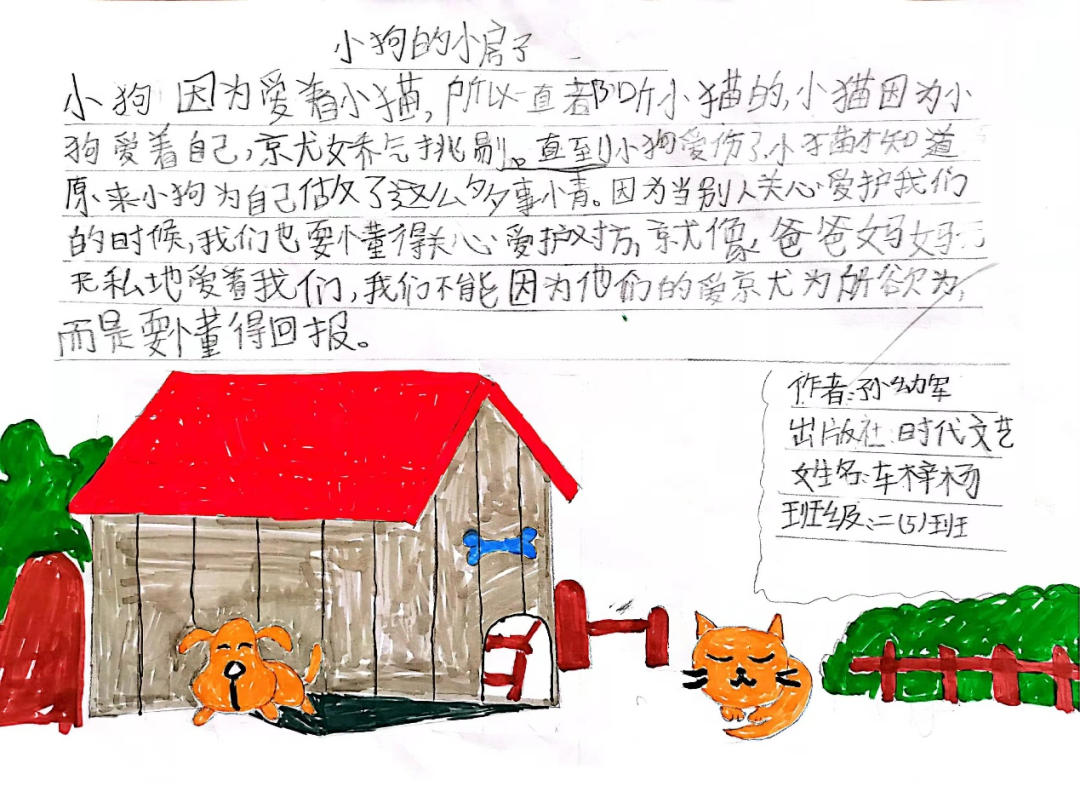 小狗的小房子
小狗因为爱着小猫,所以一直都听小猫的,小猫因为小
狗爱着自己,就娇气挑剔。直到小狗受伤了,小猫才知道
原来小狗为自己做了这么多事情。因为当别人关心爱护我们
的时候,我们也要懂得关心爱护对方,就像爸爸妈妈无
无私地爱着我们,我们不能因为他们的爱就为所欲为,
而是要懂得回报。
作者:孙幼军
出版社:时代文艺
姓名:车梓杨
班级:二(5)班